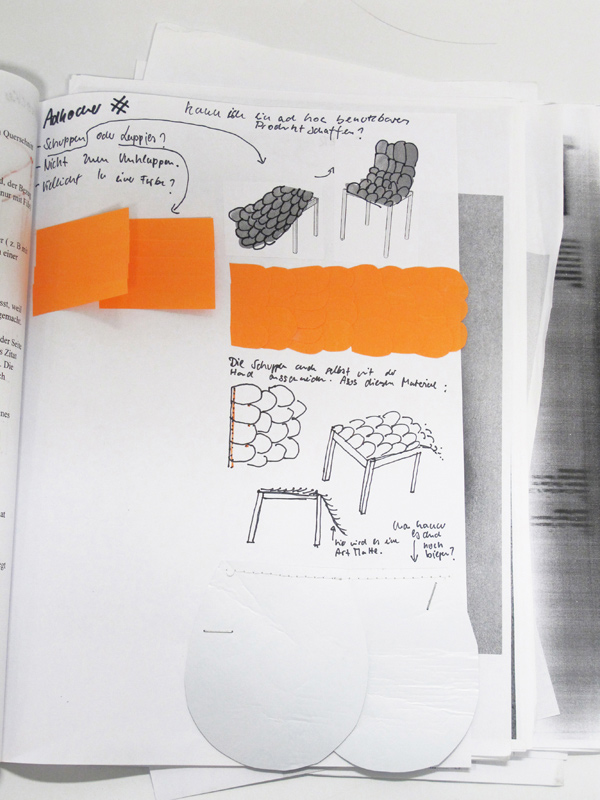 Adhocker #
kann ich ein ad hoc benutzbares
Produkt schaffen?
- Schuppen oder Lappies?
- Nicht zum Umklappen.
- Vielleicht in einer Farbe?
Die Schuppen auch selbst mit der
Hand ausschneiden. Aus diesem Material:
hier wird es eine
Art Matte.
man kann
es auch
noch
biegen?
Querschnitt
der
nur mit
( z. B
einer
sst, weil
gemacht.
der Seite
Zitat
Die